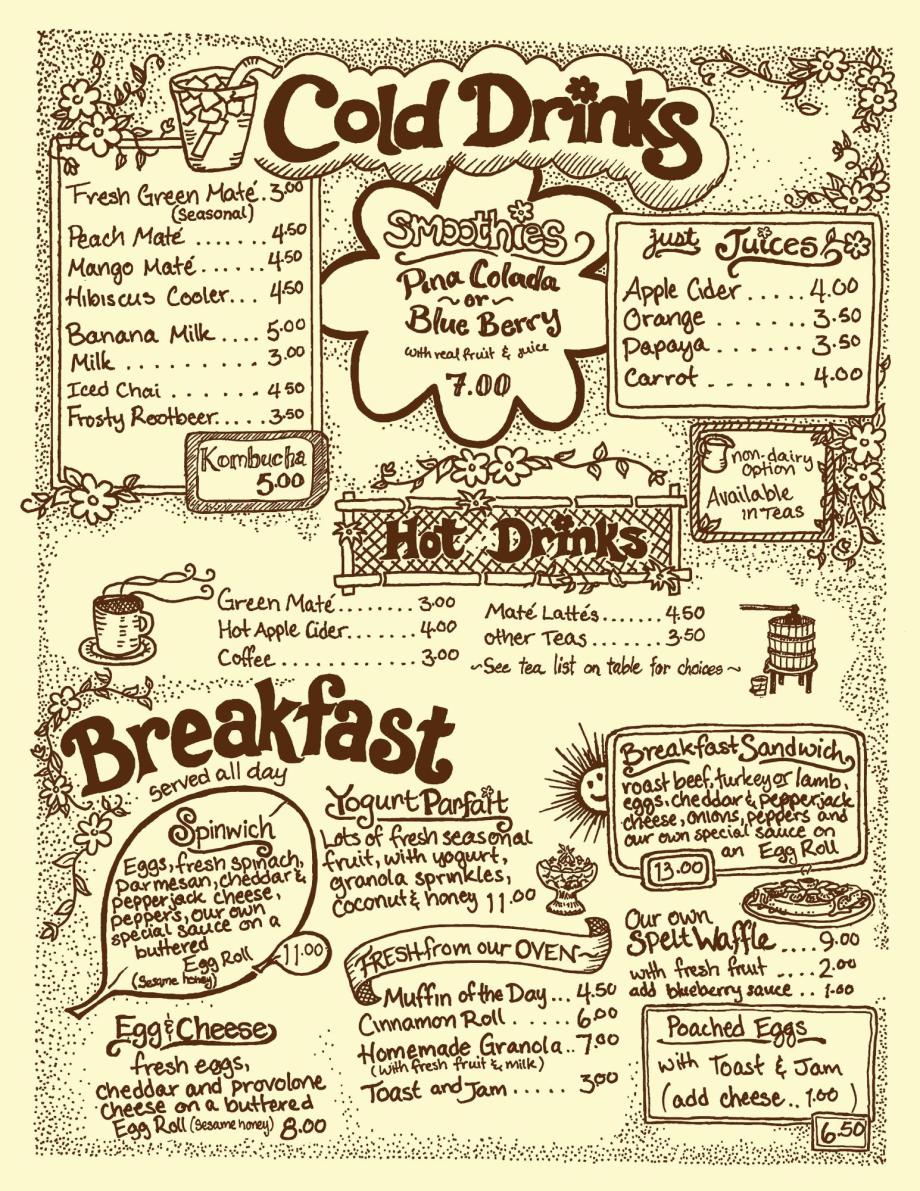 Cold Drinks
Fresh Green Maté. 3.00
(Seasonal)
Peach Maté ...... 4.50
Mango Maté...... 4.50
Hibiscus Cooler... 4.50
Banana Milk .... 5.00
Milk ......... 3.00
Iced Chai ...... 4.50
Frosty Rootbeer..... 3.50
Kombucha
5.00
Smoothies
Pina Colada
~or~
Blue Berry
with real fruit & juice
7.00
just Juices
Apple Cider ..... 4.00
Orange ....... 3.50
Papaya ....... 3.50
Carrot ....... 4.00
non-dairy
option
Available
in Teas
Hot Drinks
Green Maté........ 3.00
Hot Apple Cider....... 4.00
Coffee ............. 3.00
Maté Lattés....... 4.50
other Teas ....... 3.50
~See tea list on table for choices~
Breakfast
served all day
Spinwich
Eggs, fresh spinach,
parmesan, cheddar &
pepperjack cheese,
peppers, our own
special sauce on a
buttered
Egg Roll
(Sesame honey)
11.00
Egg & Cheese
fresh eggs,
cheddar and provolone
cheese on a buttered
Egg Roll (Sesame honey) 8.00
Yogurt Parfait
Lots of fresh seasonal
fruit, with yogurt,
granola sprinkles,
coconut & honey 11.00
FRESH from our OVEN~
Muffin of the Day... 4.50
Cinnamon Roll ...... 6.00
Homemade Granola.. 7.00
(with fresh fruit & milk)
Toast and Jam ..... 3.00
Breakfast Sandwich
roast beef, turkey or lamb,
eggs, cheddar & pepperjack
cheese, onions, peppers and
our own special sauce on
an Egg Roll
13.00
Our own
Spelt Waffle .... 9.00
with fresh fruit .... 2.00
add blueberry sauce .. 1.50
Poached Eggs
with Toast & Jam
(add cheese.. 1.00 )
6.50